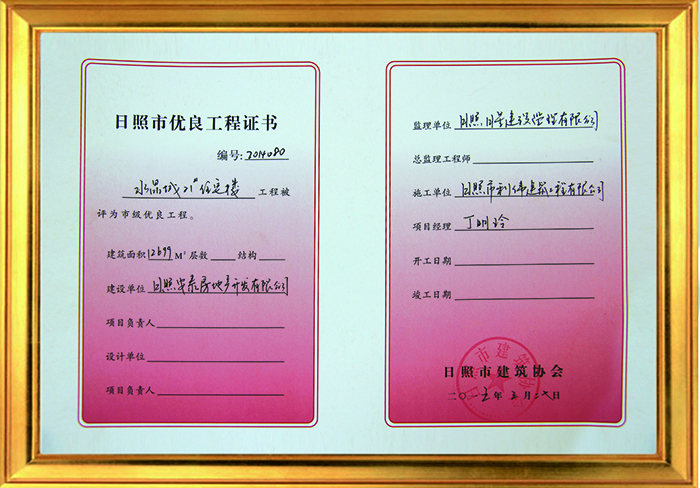 日照市优良工程证书
编号: 2014080
水晶城21#住宅楼 工程被
评为市级优良工程。
建筑面积 12699 M² 层数 结构
建设单位 日照安泰房地产开发有限公司
项目负责人
设计单位
项目负责人
监理单位 日照 建设监理有限公司
总监理工程师
施工单位 日照市利伟建筑工程有限公司
项目经理 丁明玲
开工日期
竣工日期
日照市建筑协会
二〇一五年 月 日